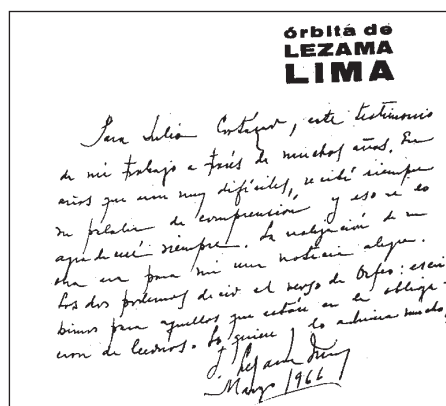 órbita de
LEZAMA
LIMA
Para Julio Cortázar, este testimonio
de mi trabajo a través de muchos años. En
años que eran muy difíciles, recibí siempre
su palabra de comprensión y eso se lo
agradeceré siempre. La realización de su
era para mí una noticia alegre.
Los dos podemos decir el verso de Orfeo: escri
bimos para aquellos que están en la obliga-
ción de leernos. Lo quiere y lo admira mucho,
J Lezama Lima
Marzo 1966